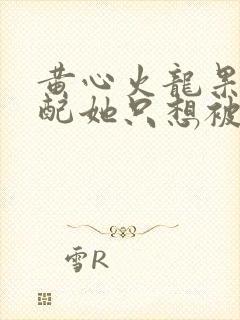 黄心火龍果
配她只想被
雪R